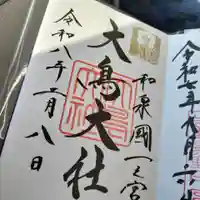 和泉國一之宮
大鳥大社
令和八年月八日
令和七年